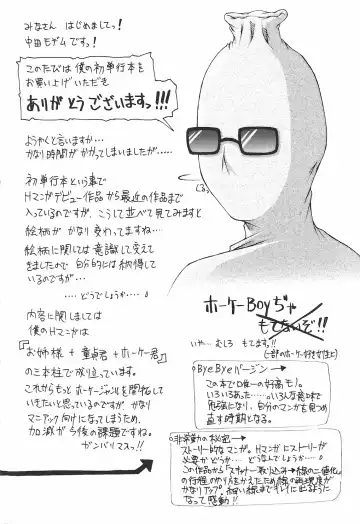 みなさん はじめましてっ!
中田モデムです。!
このたびは僕の初単行本を
お買い上げいただき
ありがとうございますっ!!!
ようやくと言いますか…
かなり時間がかかってしまいましたが……
初単行本という事で
Hマンガデビュー作品から最近の作品まで
入っているのですが、こうして並べて見てみますと
絵柄がかなり変わってますね…
絵柄に関しては意識して変えて
きましたので自分的には納得して
いるのですが…
……どうでしょうか……。
内容に関しましては
僕のHマンガは
『お姉様+童貞君+ホーケー君』
の三本柱で成り立っています。
これからもっとホーケージャンルを開拓して
いきたいと思っているのですが、かなり
マニアック向けになってしまうため、
加減が今後の課題ですね。
ガンバリマスっ!!
ホーケーBoyぢゃ
もてないぞ!!
いや…むしろもてます。!!
(一部のホーケー好き女性に)
ByeByeバージン
この本で唯一の
いろいろあった……。いろんな意味で
勉強になり、自分のマンガを見つめ
直す時期となる。
非常勤の秘密
ストーリー的なマンガ。Hマンガにストーリーが
必要かどうか…どうなんでしょうか…。
この作品から「スキャナー取り込み→線の二値化」
の行程のやり方をかえたため線の再現度が
かなりアップ。細い線までキレイに出るように
なって感動!!